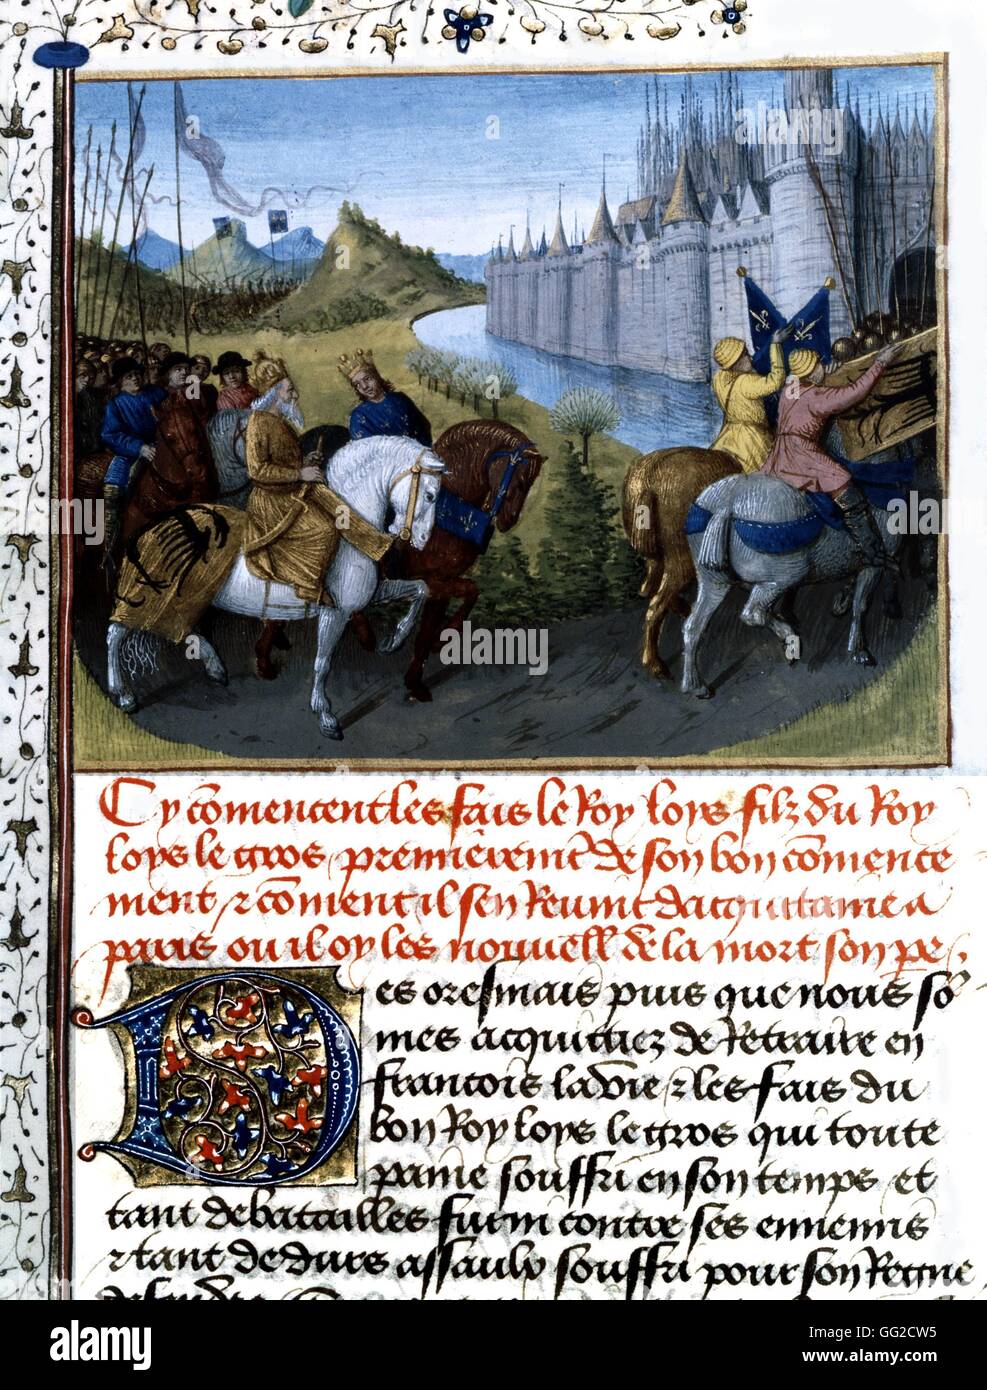 Cy comencent les fais le Roy loys filz du Roy
loys le gros, premieremt de son bon comence
ment & coment il sen Revint dacquitaine a
paris ou il oy les nouvell de la mort son pe.
Des oresmais puis que nous so
mes acquittez de Retraire en
francois la vie & les fais du
bon Roy loys le gros qui toute
paine souffri en son temps et
tant de batailles furm contre ses ennemis
& tant de durs assaulx souffri pour son Regne
alamy
alamy stock photo
Image ID: GG2CW5
www.alamy.com